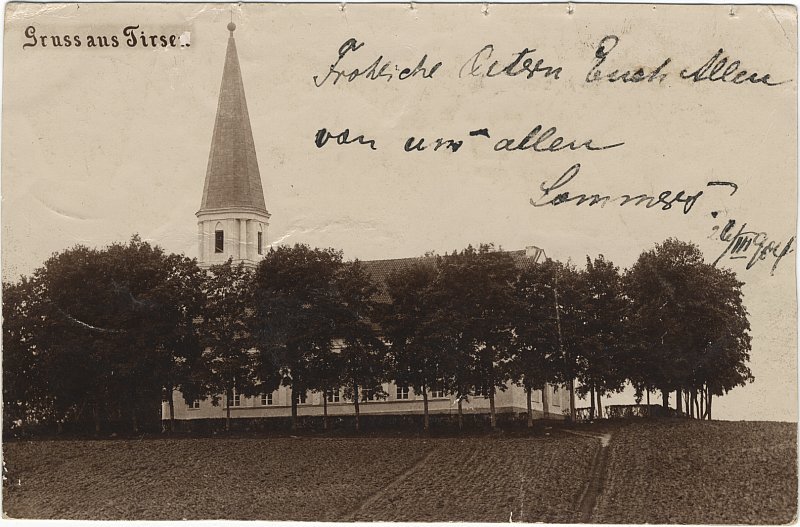 Gruss aus Tirsen.
Fröhliche Ostern Euch Allen
von uns allen
Sommers
/III 904